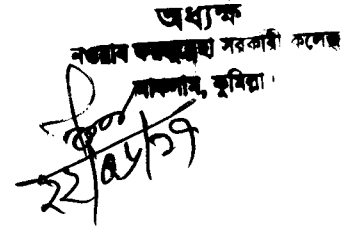 অধ্যক্ষ
নওয়াব ফয়জুন্নেছা সরকারী কলেজ
লাকসাম, কুমিল্লা।